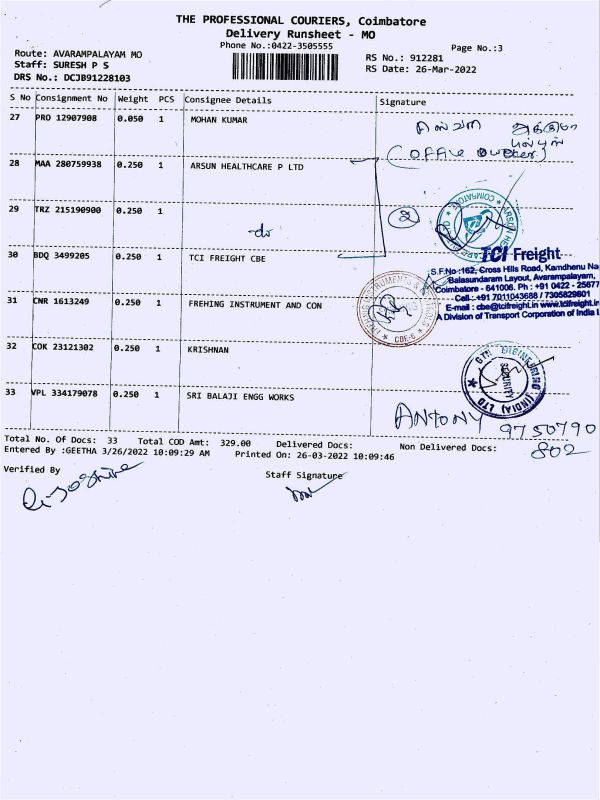 THE PROFESSIONAL COURIERS, Coimbatore
Delivery Runsheet - MO
Phone No.:0422-3505555
Page No.:3
Route: AVARAMPALAYAM MO
Staff: SURESH P S
DRS No.: DCJB91228103
RS No.: 912281
RS Date: 26-Mar-2022
S No Consignment No Weight PCS Consignee Details Signature
27 PRO 12907908 0.050 1 MOHAN KUMAR
(OFFICE
28 MAA 280759938 0.250 1 ARSUN HEALTHCARE P LTD
29 TRZ 215190900 0.250 1 -do-
2
30 BDQ 3499205 0.250 1 TCI FREIGHT CBE
TCI Freight
S.F.No:162, Cross Hills Road, Kamdhenu Na
Balasundaram Layout, Avarampalayam,
Coimbatore - 641006. Ph : +91 0422 - 25677
Cell.: +91 7011043688 / 7305829601
E-mail : cbe@tcifreight.in www.tcifreight.in
A Division of Transport Corporation of India L
31 CNR 1613249 0.250 1 FREHING INSTRUMENT AND CON
CBE-6
32 COK 23121302 0.250 1 KRISHNAN
ENGINEERING (INDIA) LTD
SECURITY
33 VPL 334179078 0.250 1 SRI BALAJI ENGG WORKS
ANTONY 9750790
802
Total No. Of Docs: 33 Total COD Amt: 329.00 Delivered Docs: Non Delivered Docs:
Entered By :GEETHA 3/26/2022 10:09:29 AM Printed On: 26-03-2022 10:09:46
Verified By
Staff Signature